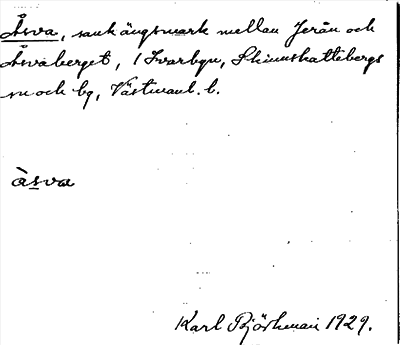 Åsva, sank ängsmark mellan Jerån och
Åsvaberget, i Svarbyn, Skinnskattebergs
sn och bg, Västmanl. l.
åsva
Karl Björkman 1929.